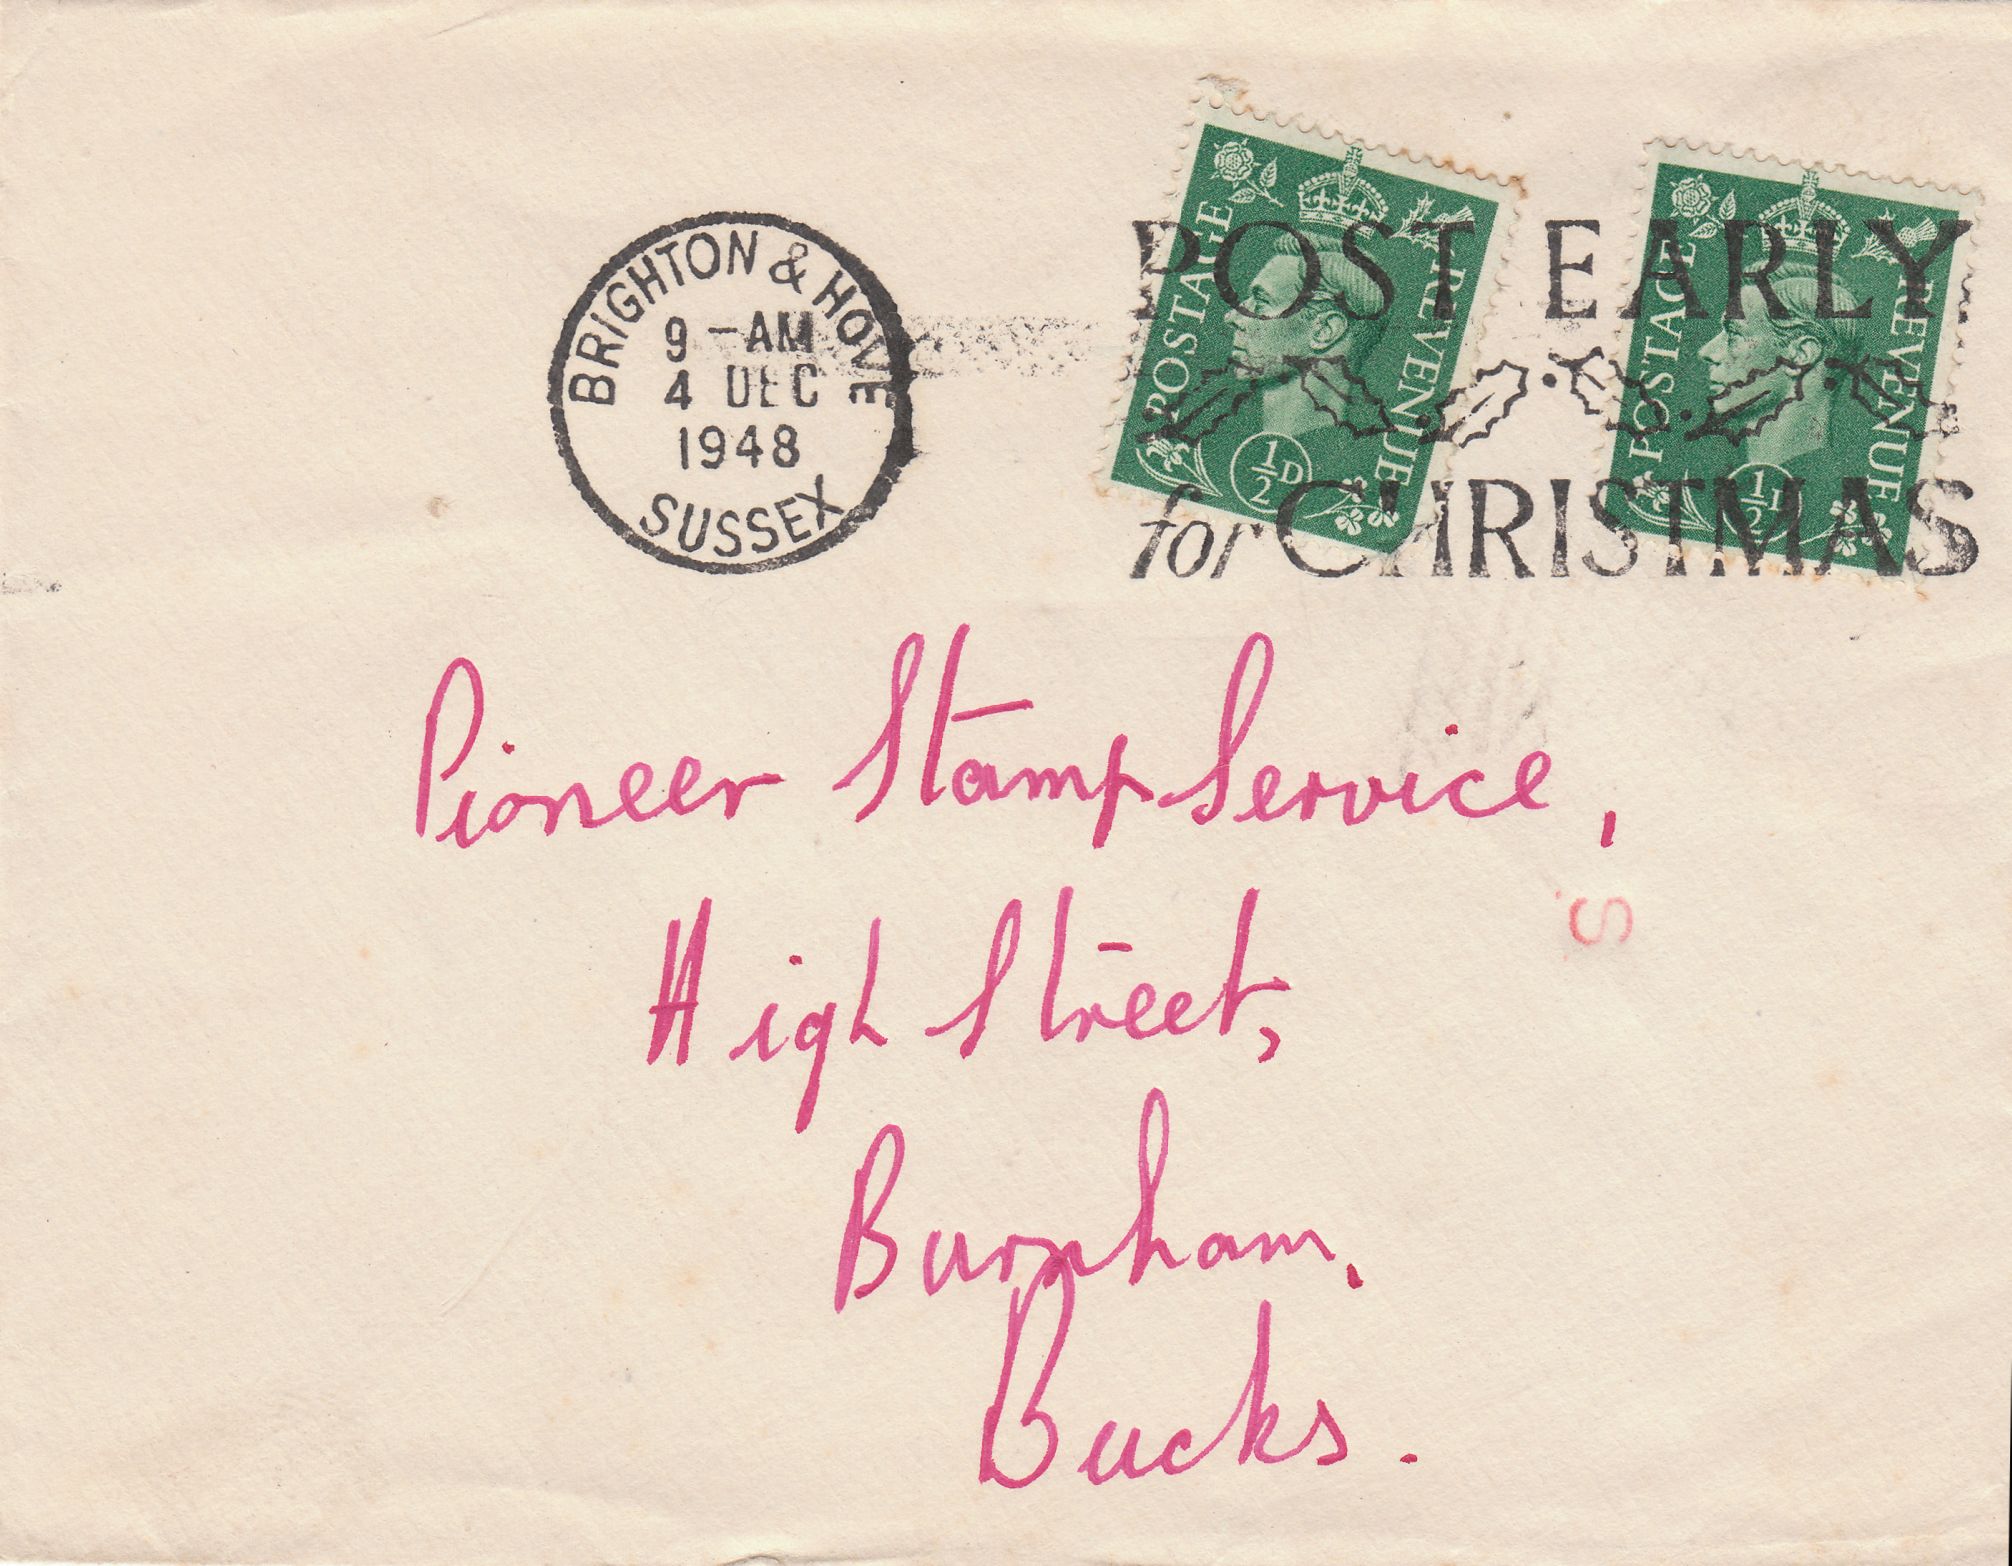 BRIGHTON & HOVE
9 – AM
4 DEC
1948
SUSSEX
POST EARLY
for CHRISTMAS
POSTAGE REVENUE
1/2 D
POSTAGE REVENUE
1/2 D
Pioneer Stamp Service,
S
High Street,
Burnham.
Bucks.